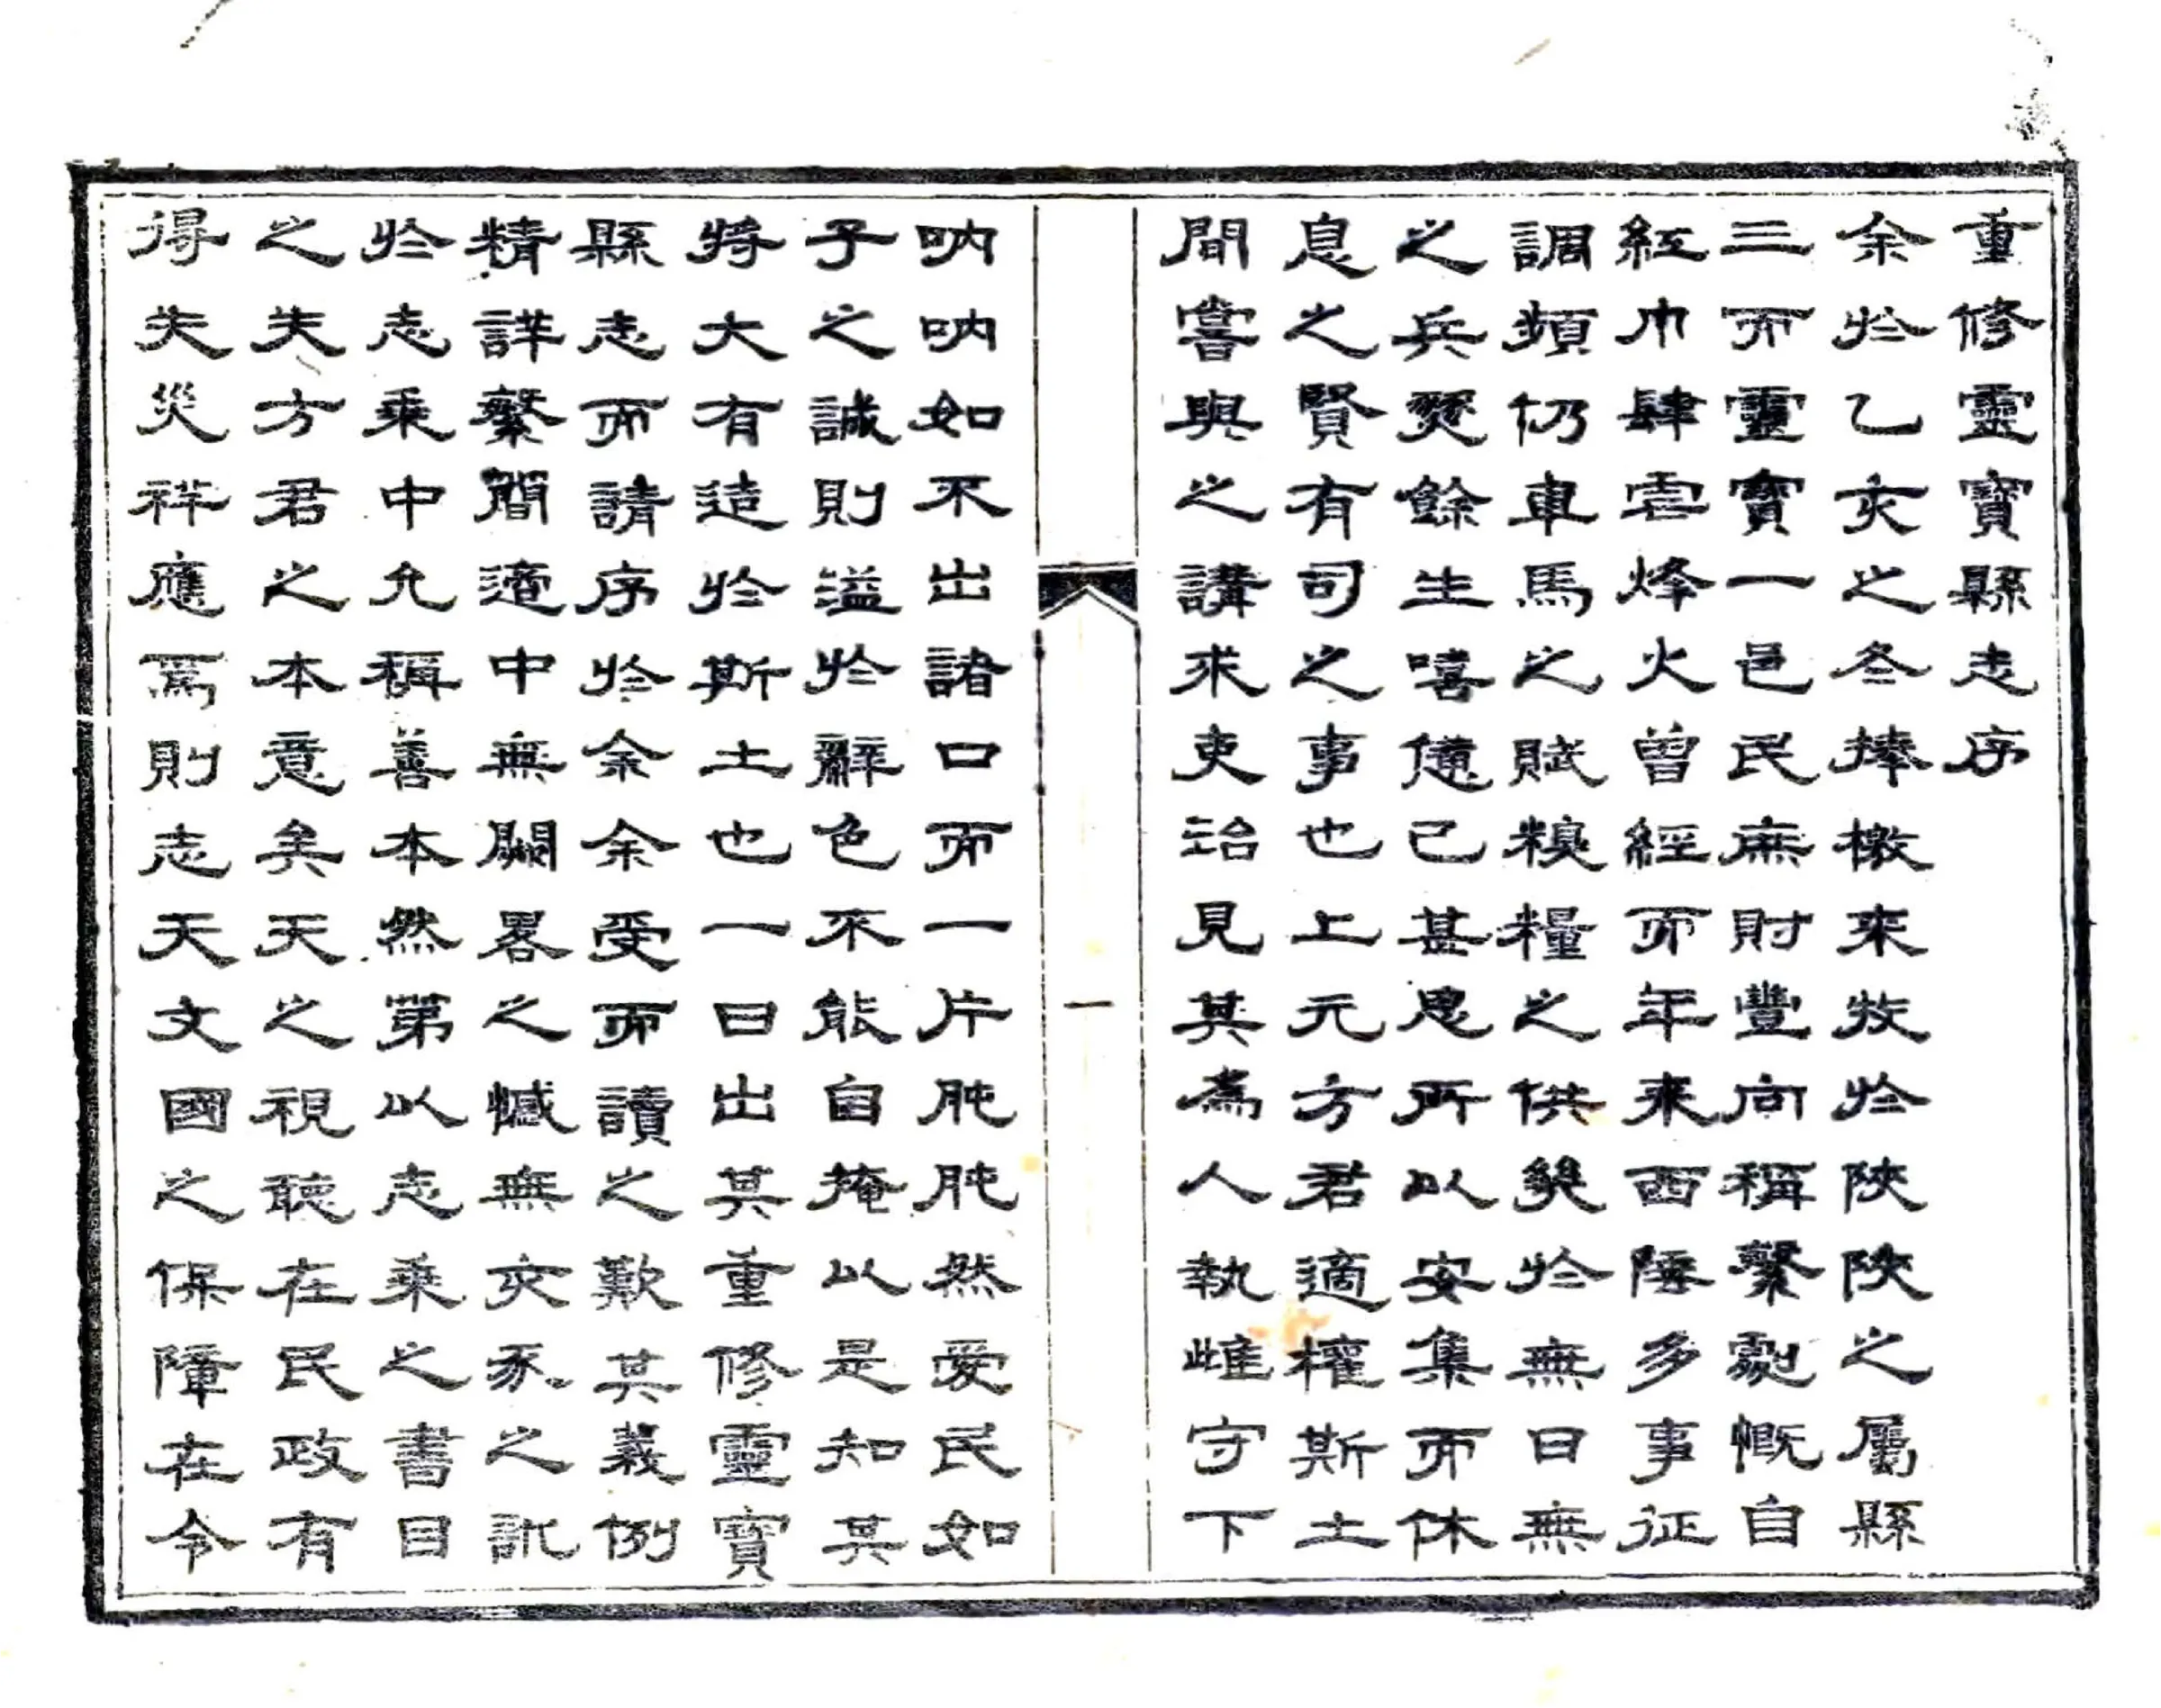 重修靈寶縣志序
余於乙亥之冬捧檄來牧於陝陝之屬縣
三而靈寶一邑民庶財豐向稱繫劇慨自
紅巾肆虐烽火曾經而年来西陲多事征
調頻仍車馬之賦糗糧之供幾於無日無
之兵燹餘生嘻憊已甚思所以安集而休
息之賢有司之事也上元方君適權斯土
間嘗與之講求吏治見其為人執雌守下
吶吶如不出諸口而一片肫肫然愛民如
子之誠則溢於辭色不能自掩以是知其
將大有造於斯土也一日出其重修靈寶
縣志而請序於余余受而讀之歎其義例
精詳繫簡適中無闕畧之憾無亥豕之訛
於志乘中允稱善本然第以志乘之書目
之失方君之本意矣天之視聽在民政有
得失災祥應焉則志天文國之保障在令